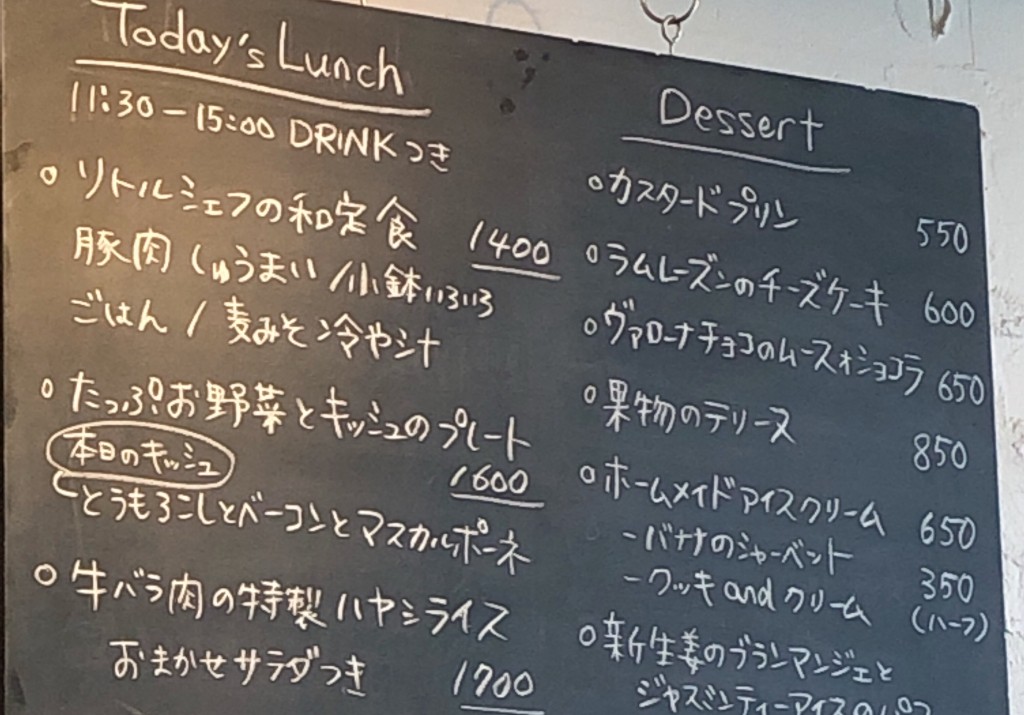 Today's Lunch
11:30-15:00 DRINKつき
○リトルシェフの和定食 1400
豚肉しゅうまい/小鉢いろいろ
ごはん/麦みそ冷や汁
○たっぷりお野菜とキッシュのプレート
本日のキッシュ 1600
とうもろこしとベーコンとマスカルポーネ
○牛バラ肉の特製ハヤシライス
おまかせサラダつき 1700
Dessert
○カスタードプリン 550
○ラムレーズンのチーズケーキ 600
○ヴァローナチョコのムースオショコラ 650
○果物のテリーヌ 850
○ホームメイドアイスクリーム 650
-バナナのシャーベット 350
-クッキandクリーム (ハーフ)
○新生姜のブランマンジェと
ジャスミンティーアイスのパフ